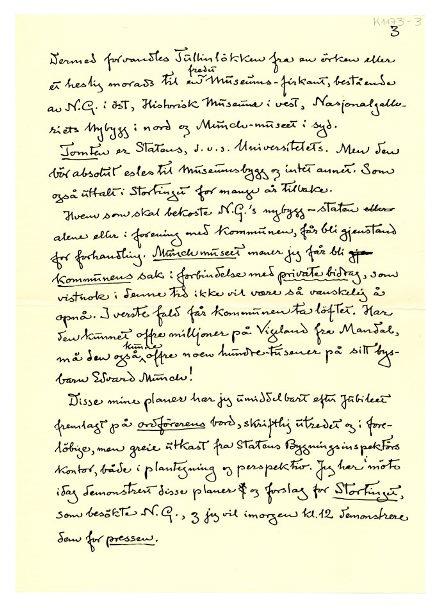 K1173-3
3
Dermed forvandles Tullinløkken fra en örken eller
et heslig morads til en fredet Museums-firkant, bestående
av N.G. i öst, Historisk Museum i vest, Nasjonalgalle-
riets Nybygg i nord og Munch-museet i syd.
Tomten er Statens, d.v.s. Universitetets. Men den
bör absolut esles til Museumsbygg og intet annet. Som
også uttalt i Stortinget for mange år tilbake.
Hvem som skal bekoste N.G.'s nybygg – staten
alene eller i forening med kommunen, får bli gjenstand
for forhandling. Munch museet mener jeg får bli
Kommunens sak i forbindelse med private bidrag, som
vistnok i denne tid ikke vil være så vanskelig å
opnå. I verste fald får kommunen ta löftet. Har
den kunnet ofre millioner på Vigeland fra Mandal,
må den også kunne ofre noen hundre-tusener på sitt bys-
barn Edvard Munch!
Disse mine planer har jeg umiddelbart efter Jubileet
fremlagt på ordförerens bord, skriftlig utredet og i fore-
löbige, men greie utkast fra Statens Bygningsinspektörs
kontor, både i plantegning og perspektiv. Jeg har
idag demonstrert disse planer og forslag for Stortinget,
som besökte N.G., og jeg vil imorgen kl. 12 demonstrere
dem for pressen.